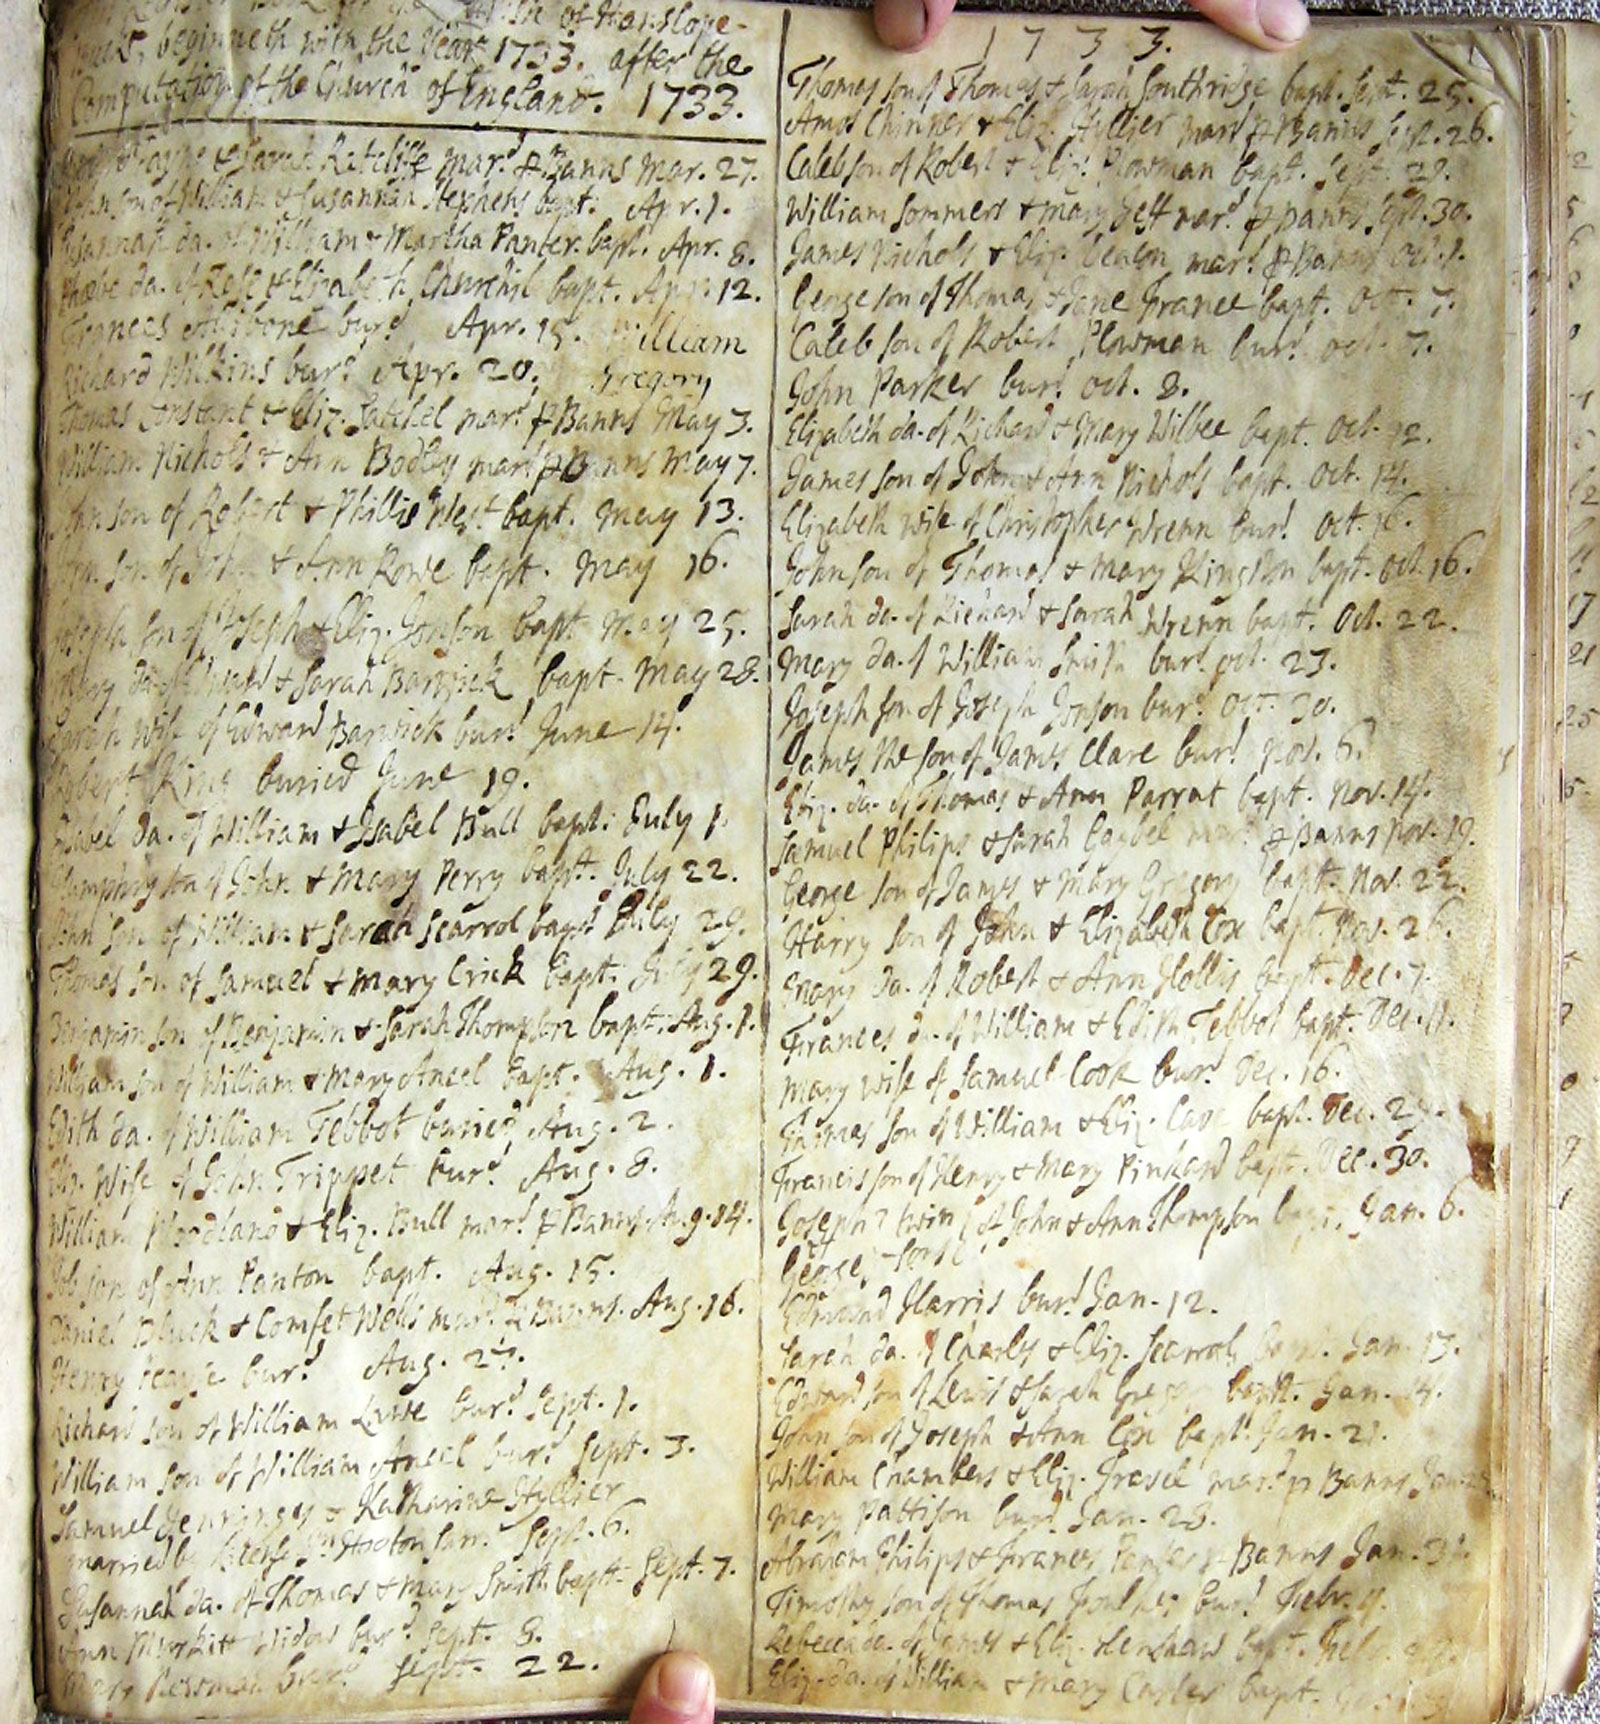 of Hanslope
Bucks, beginneth with the Year 1733. after the
Computation of the Church of England. 1733.
& Sarah Ratcliffe mar.d p Banns Mar. 27.
John son of William & Susannah Stephens bapt. Apr. 1.
Susannah da. of William & Martha Panter bapt. Apr. 8.
Phœbe da. of & Elizabeth Churchil bapt. Apr. 12.
Frances bur.d Apr. 15. William
Richard Wilkins bur.d Apr. 20. Gregory
Thomas Constant & Eliz. Satchel mar.d p Banns May 3.
William Nichols & Ann Bodley mar.d p Banns May 7.
John son of Robert & Phillis West bapt. May 13.
John son of John & Ann Rowe bapt. May 16.
Joseph son of Joseph & Eliz. Jonson bapt. May 25.
Mary da. of Edward & Sarah Barwick bapt. May 28.
Sarah wife of Edward Barwick bur.d June 14.
Robert King buried June 19.
Isabel da. of William & Isabel Bull bapt. July 1.
Humphry son of John & Mary Perry bapt. July 22.
John son of William & Sarah Scarrol bapt. July 29.
Thomas son of Samuel & Mary Crick bapt. July 29.
Benjamin son of Benjamin & Sarah Thompson bapt. Aug. 1.
William son of William & Mary Ancel bapt. Aug. 1.
Edith da. of William Tebbot buried Aug. 2.
Eliz. Wife of John Trippet bur.d Aug. 8.
William Woodland & Eliz. Bull mar.d p Banns Aug. 14.
Job son of Ann Panton bapt. Aug. 15.
Daniel Bluck & Comfet Wells mar.d p Banns. Aug. 16.
Henry bur.d Aug.
Richard son of William Lane bur.d Sept. 1.
William son of William Ancel bur.d Sept. 3.
Samuel Jennings & Katharine Hyllier
married by Sept. 6.
Susannah da. of Thomas & Mary Smith bapt. Sept. 7.
Ann Widow bur.d Sept. 8.
Mary bur.d Sept. 22.
1733.
Thomas son of Thomas & Sarah Southridge bapt. Sept. 25.
Amos Chinner & Eliz. Hyllier mar.d p Banns Sept. 26.
Caleb son of Robert & Eliz. Plowman bapt. Sept. 29.
William Sommers & Mary mar.d p Banns Sept. 30.
James Nichols & Eliz. Deacon mar.d p Banns Oct. 1.
George son of Thomas & Jane France bapt. Oct. 7.
Caleb son of Robert Plowman bur.d Oct. 7.
John Parker bur.d Oct. 8.
Elizabeth da. of Richard & Mary Wilbee bapt. Oct. 12.
James son of John & Ann Nichols bapt. Oct. 14.
Elizabeth wife of Christopher Wrenn bur.d Oct. 16.
John son of Thomas & Mary Kingston bapt. Oct. 16.
Sarah da. of Richard & Sarah Wrenn bapt. Oct. 22.
Mary da. of William Smith bur.d Oct. 23.
Joseph son of Joseph Jonson bur.d Oct. 30.
James the son of James Clare bur.d Nov. 6.
Eliz. da. of Thomas & Ann Parrat bapt. Nov. 14.
Samuel Philips & Sarah mar.d p Banns Nov. 19.
George son of James & Mary Gregory bapt. Nov. 22.
Harry son of John & Elizabeth Cox bapt. Nov. 26.
Mary da. of Robert & Ann Hollis bapt. Dec. 7.
Frances da. of William & Edith Tebbot bapt. Dec. 11.
Mary wife of Samuel Cook bur.d Dec. 16.
Thomas son of William & Eliz. Cave bapt. Dec.
Francis son of Henry & Mary Pinkard bapt. Dec. 30.
Joseph twin of John & Ann Thompson bapt. Jan. 6.
&
George sons
Edmund Harris bur.d Jan. 12.
Sarah da. of Charles & Eliz. Scarrol bapt. Jan. 13.
Edward son of Lewis & Sarah bapt. Jan. 14.
John son of Joseph & Ann Cox bapt. Jan. 21.
William Chambers & Eliz. mar.d p Banns Jan.
Mary Pattison bur.d Jan. 28.
Abraham Philips & Frances p Banns Jan.
Timothy son of Thomas bur.d Febr.
Rebecca da. of James & Eliz. bapt. Febr.
Eliz. da. of William & Mary Carter bapt.